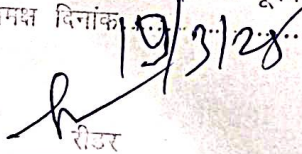 मक्ष दिनांक 19/3/28
रीडर